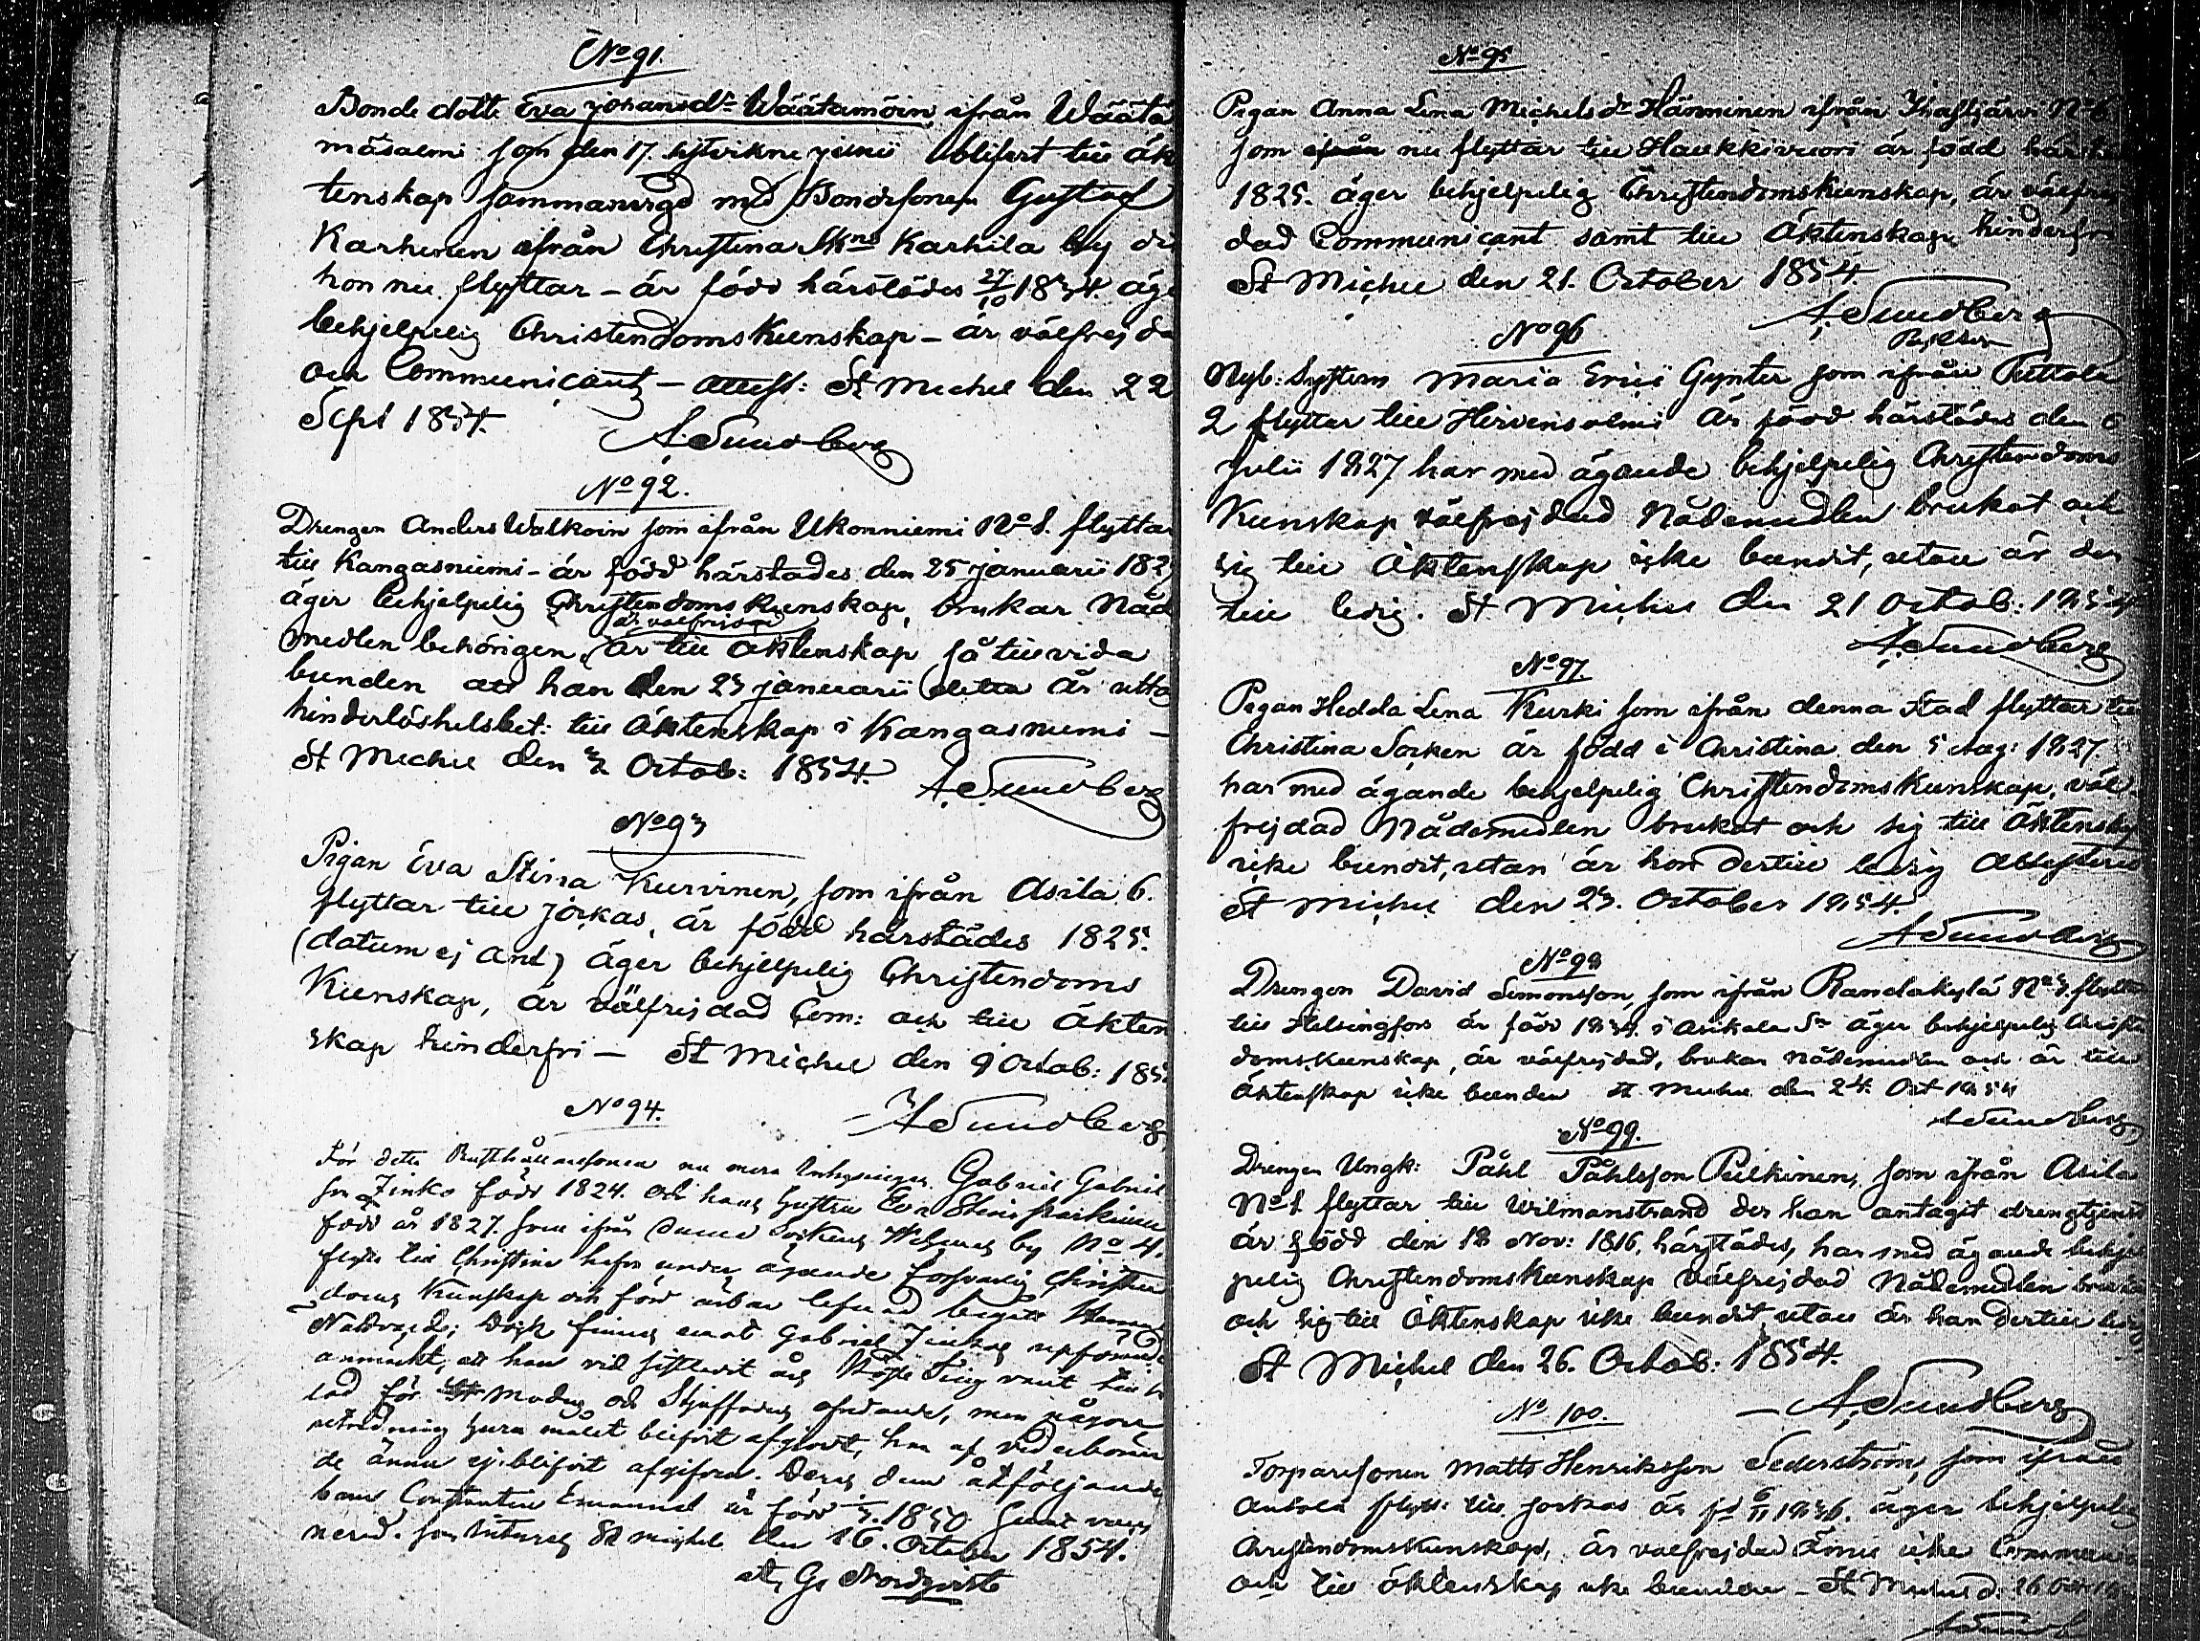 No 91.
Bonde dottr Eva Johansdr Wäätämöin, ifrån Wäätä
mäsalmi som den 17. sistvikne junii blifvit till äk
tenskap sammanvigd med Bondesonen Gustaf
Karhinen ifrån Christina Skn Karhila by di
hon nu flyttar – är född härstädes 27/10 1834. äg
behjelpelig Christendoms Kunskap – är välfrejda
och Communicant – attest: St Michel den 22
Sept 1854.
A. Sundberg
No 92.
Drengen Anders Walkoin som ifrån Ukonniemi No 8. flyttar
till Kangasniemi – är född härstädes den 25 januarii 182
äger behjelpelig Christendoms Kunskap, brukar Nåd
är välfrejdad
medlen behörigen, är till Äktenskap så till vida
bunden att han den 23 januarii detta år uttag
hinderlöshetsbet: till Äktenskap i Kangasniemi –
St Michel den 3 Octob: 1854.
A. Sundberg
No 93
Pigan Eva Stina Kurvinen, som ifrån Asila 6.
flyttar till Jorkas, är född härstädes 1825.
(datum ej ant) äger behjelpelig Christendoms
Kunskap, är välfrejdad Com: och till Äkten
skap hinderfri – St Michel den 9 Octob: 185
A Sundberg
No 94.
För detta Rusthållaresonen nu mera Inhysingen Gabriel Gabriels
son Jinko född 1824. och hans hustru Eva Stina Parkinen
född år 1827. som ifrån denna Sockens by No 4.
flytta till Christina hafva under ägande försvarlig Christen
doms Kunskap och förd ärbar lefnad begått Herrans
Nattvard; Dock finnes emot Gabriel Jinkos uppförande
anmärkt, att han vid sistledit års Höste Ting varit till
lad för Moders och Stjuffaders ofredande, men någon
utredning huru målet blifvit afgjordt, har af vederböran
de ännu ej blifvit afgifven. Deras dem åtföljande
barn Constantin Emanuel är född 1850 hund vacc
nerad. som intygas St Michel den 16. October 1854.
G. Nordqvist
No 95
Pigan Anna Lena Michelsdr Hänninen ifrån Ihastjärvi No 6
som nu flyttar till Haukkivuori är född härst
1825. äger behjelpelig Christendoms Kunskap, är välfrej
dad Communicant samt till Äktenskap hinderfri
St Michel den 21. October 1854.
A. Sundberg
No 96
Nyb: Systern Maria Ericsdr Gynter som ifrån Pettola
2 flyttar till Hirvensalmi är född härstädes den 6
Julii 1827 har med ägande behjelpelig Christendoms
Kunskap välfrejdad Nådemedlen brukat och
sig till Äktenskap icke bundit, utan är der
till ledig. St Michel den 21 Octob: 1854
A. Sundberg
No 97.
Pigan Hedda Lena Kurki som ifrån denna Stad flyttar till
Christina Socken är född i Christina den 5 Aug: 1827.
har med ägande behjelpelig Christendoms Kunskap, väl-
frejdad Nådemedlen brukat och sig till Äktenskap
icke bundit, utan är hon dertill ledig attesteras
St Michel den 23. October 1854.
A Sundberg
No 98
Drengen David Simonsson, som ifrån Randakylä No 3. flyttar
till Helsingfors är född 1834. i Asikala Sn äger behjelpelig Christen
doms Kunskap, är välfrejdad, brukar Nådemedlen och är till
Äktenskap icke bunden St Michel den 24. Oct 1854
A Sundberg
No 99.
Drengen Ungk: Påhl Påhlsson Pulkinen, som ifrån Asila
No 1 flyttar till Wilmanstrand der han antagit drengtjenst
är född den 18 Nov: 1816. härstädes, har med ägande behjel
pelig Christendoms Kunskap välfrejdad Nådemedlen brukat
och sig till Äktenskap icke bundit, utan är han dertill ledig
St Michel den 26. Octob: 1854.
A. Sundberg
No 100.
Torparesonen Matts Henriksson Sederström, som ifrån
Anttola flytt: till Jorkas är fd 6/11 1836. äger behjelpelig
Christendoms Kunskap, är välfrejdad ännu icke Communi
och till Äktenskap icke bunden – St Michel d: 26 Oct